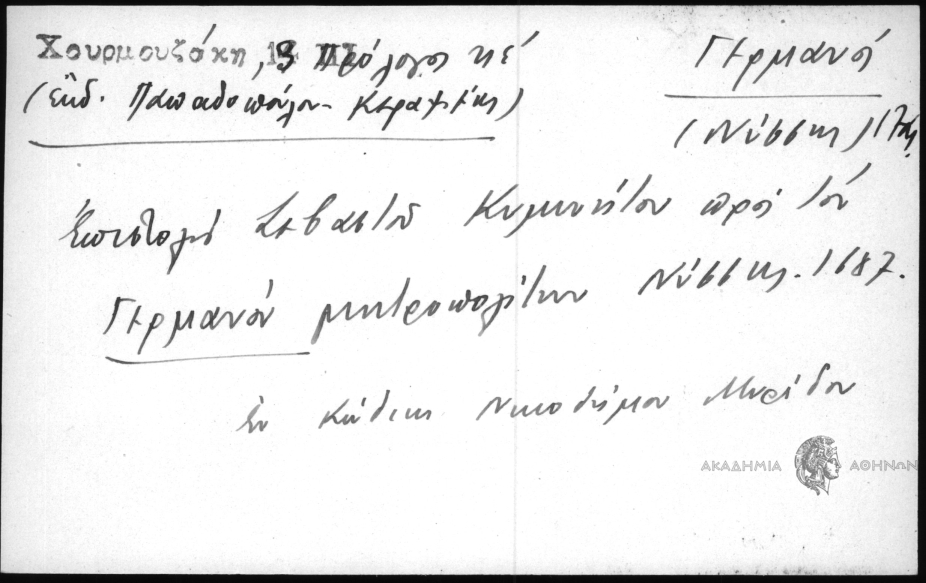 Χουρμουζάκη, 13 Πρόλογος κέ
(ἔκδ. Παπαδοπούλου - Κεραμέως)
Γερμανός
(Νύσσης) 17ος
Ἐπιστολή Σεβαστοῦ Κυμινήτου πρός τόν
Γερμανόν μητροπολίτην Νύσσης. 1687.
ἐν Κώδικι Νικοδήμου
ΑΚΑΔΗΜΙΑ ΑΘΗΝΩΝ